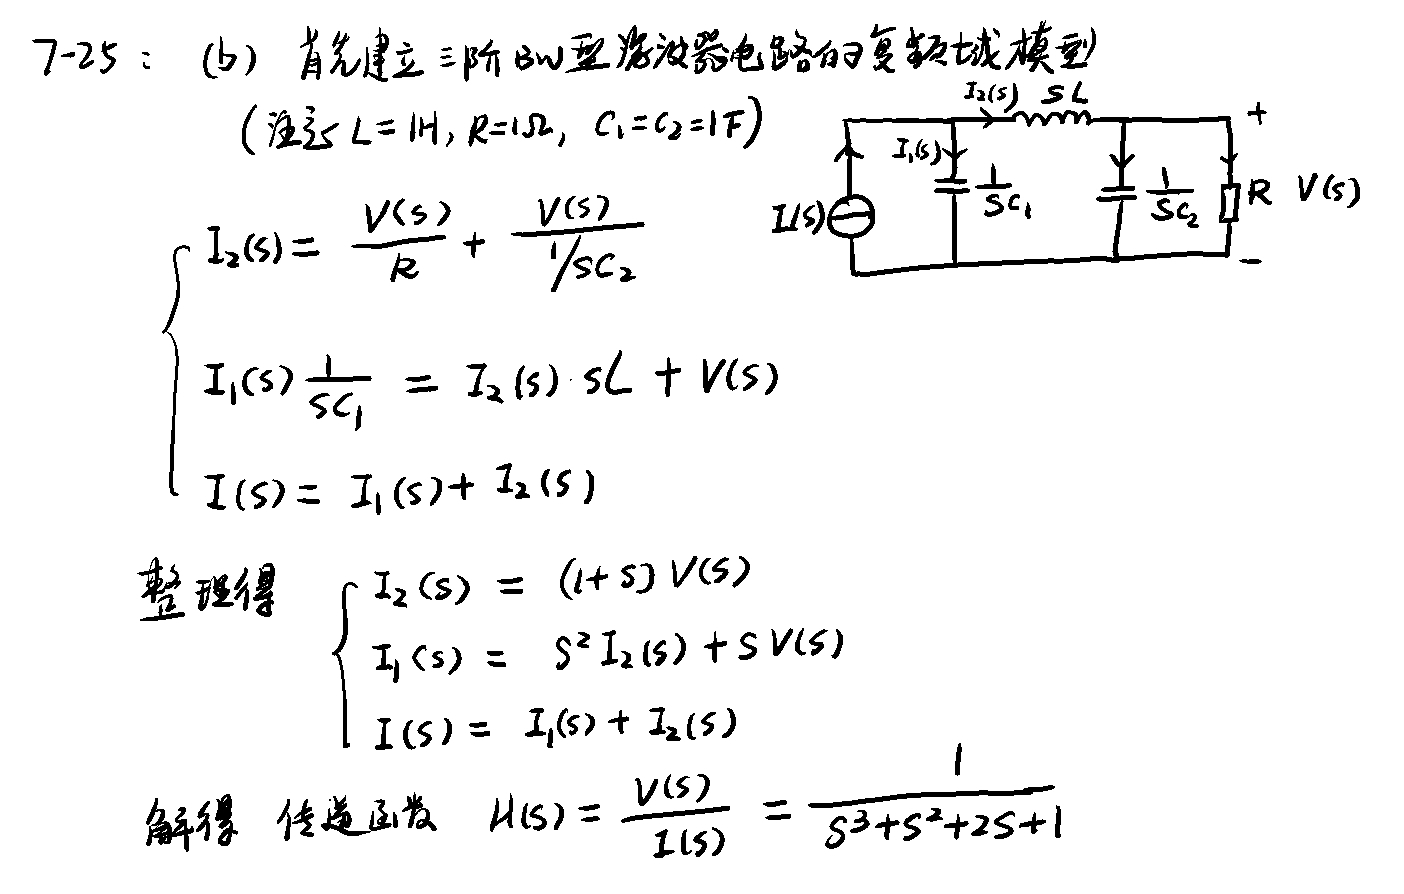 7-25： (b) 首先建立三阶BW型滤波器电路的复频域模型
(注意 L=1H, R=1Ω, C₁=C₂=1F)
I₂(s) sL +
I₁(s) 1/sC₁ 1/sC₂ R V(s)
I(s)
−
I₂(s) = V(s)/R + V(s)/(1/sC₂)
I₁(s) 1/sC₁ = I₂(s)·sL + V(s)
I(s) = I₁(s) + I₂(s)
整理得 I₂(s) = (1+s) V(s)
I₁(s) = s² I₂(s) + s V(s)
I(s) = I₁(s) + I₂(s)
解得 传递函数 H(s) = V(s)/I(s) = 1/(s³+s²+2s+1)